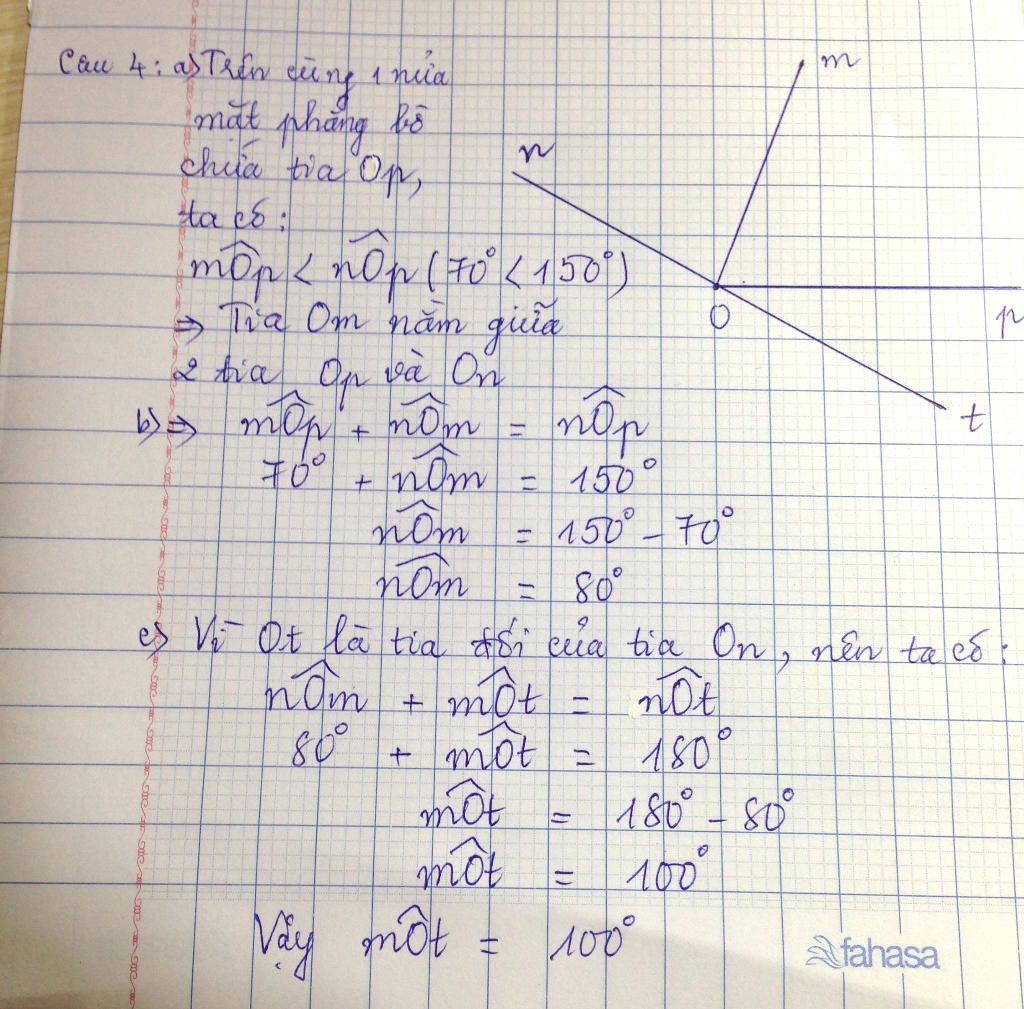 Câu 4: a) Trên cùng 1 nửa
mặt phẳng bờ
chứa tia Op,
ta có:
mÔp < nÔp (70° < 150°)
⇒ Tia Om nằm giữa
2 tia Op và On
b) ⇒ mÔp + nÔm = nÔp
70° + nÔm = 150°
nÔm = 150° - 70°
nÔm = 80°
c) Vì Ot là tia đối của tia On, nên ta có:
nÔm + mÔt = nÔt
80° + mÔt = 180°
mÔt = 180° - 80°
mÔt = 100°
Vậy mÔt = 100°
m
n
O
p
t
fahasa